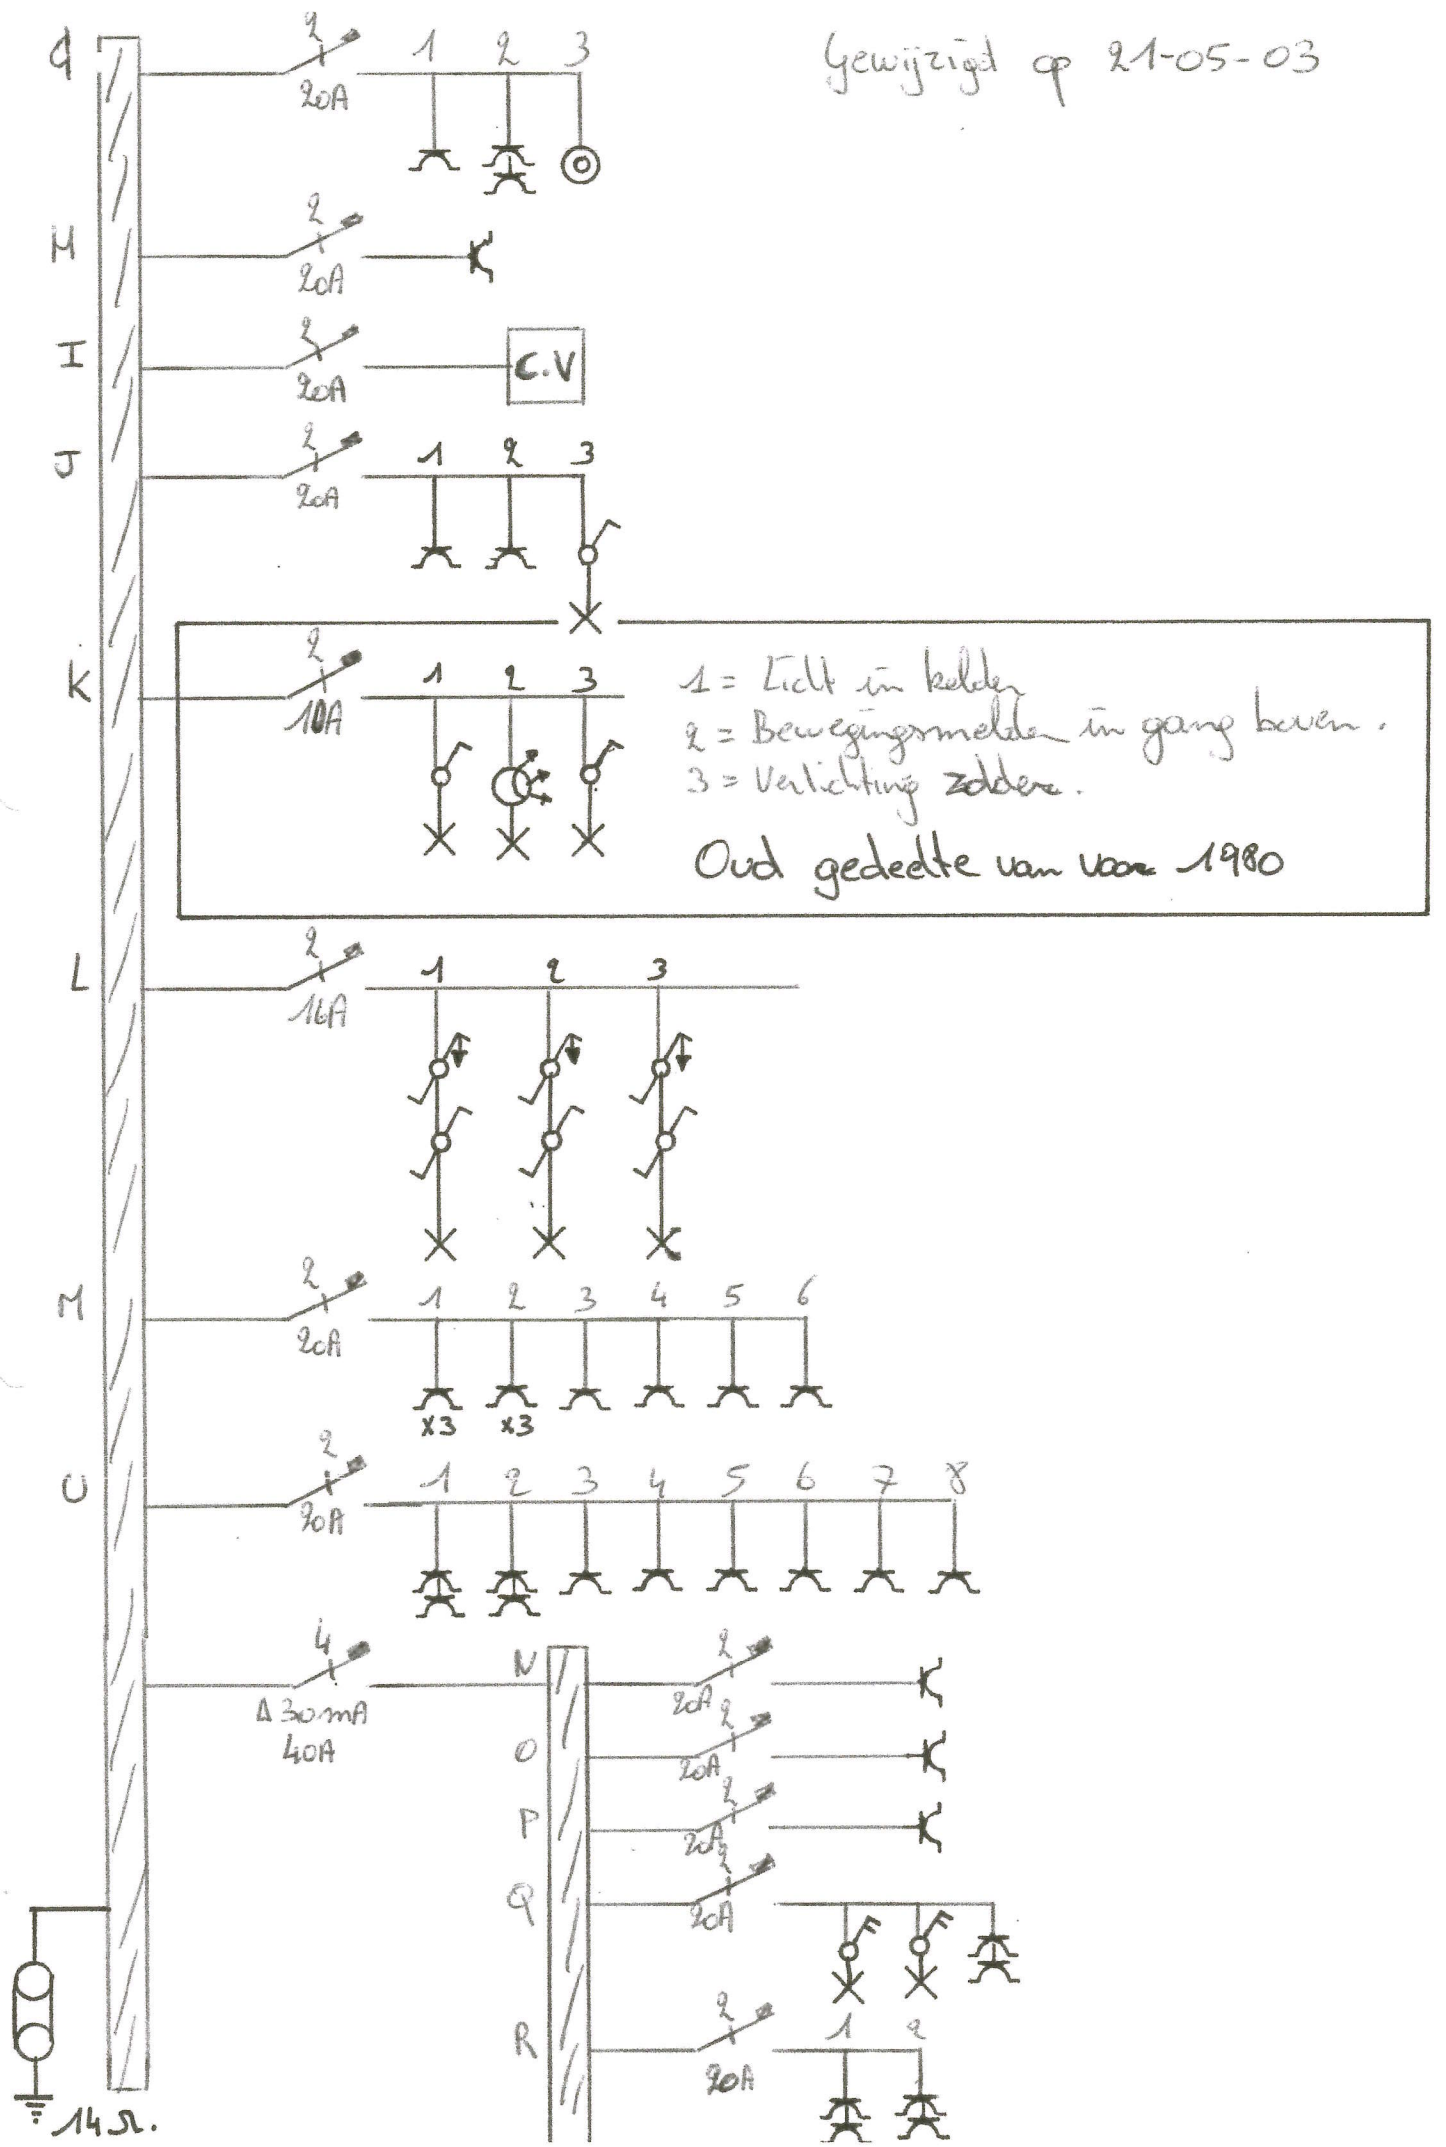 Gewijzigd op 21-05-03
G 2 20A 1 2 3
H 2 20A
I 2 20A C.V
J 2 20A 1 2 3
K 2 10A 1 2 3
1 = Licht in kelder
2 = Bewegingsmelder in gang boven.
3 = Verlichting zolder.
Oud gedeelte van voor 1980
L 2 16A 1 2 3
M 2 20A 1 2 3 4 5 6
x3 x3
U 2 20A 1 2 3 4 5 6 7 8
4 Δ30mA
40A
N 2 20A
O 2 20A
P 2 20A
Q 2 20A
R 2 20A 1 2
14Ω.